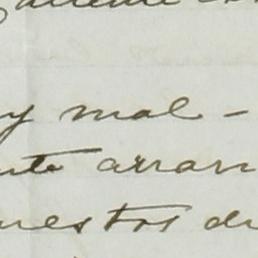 y mal-
nte arran
uestos du